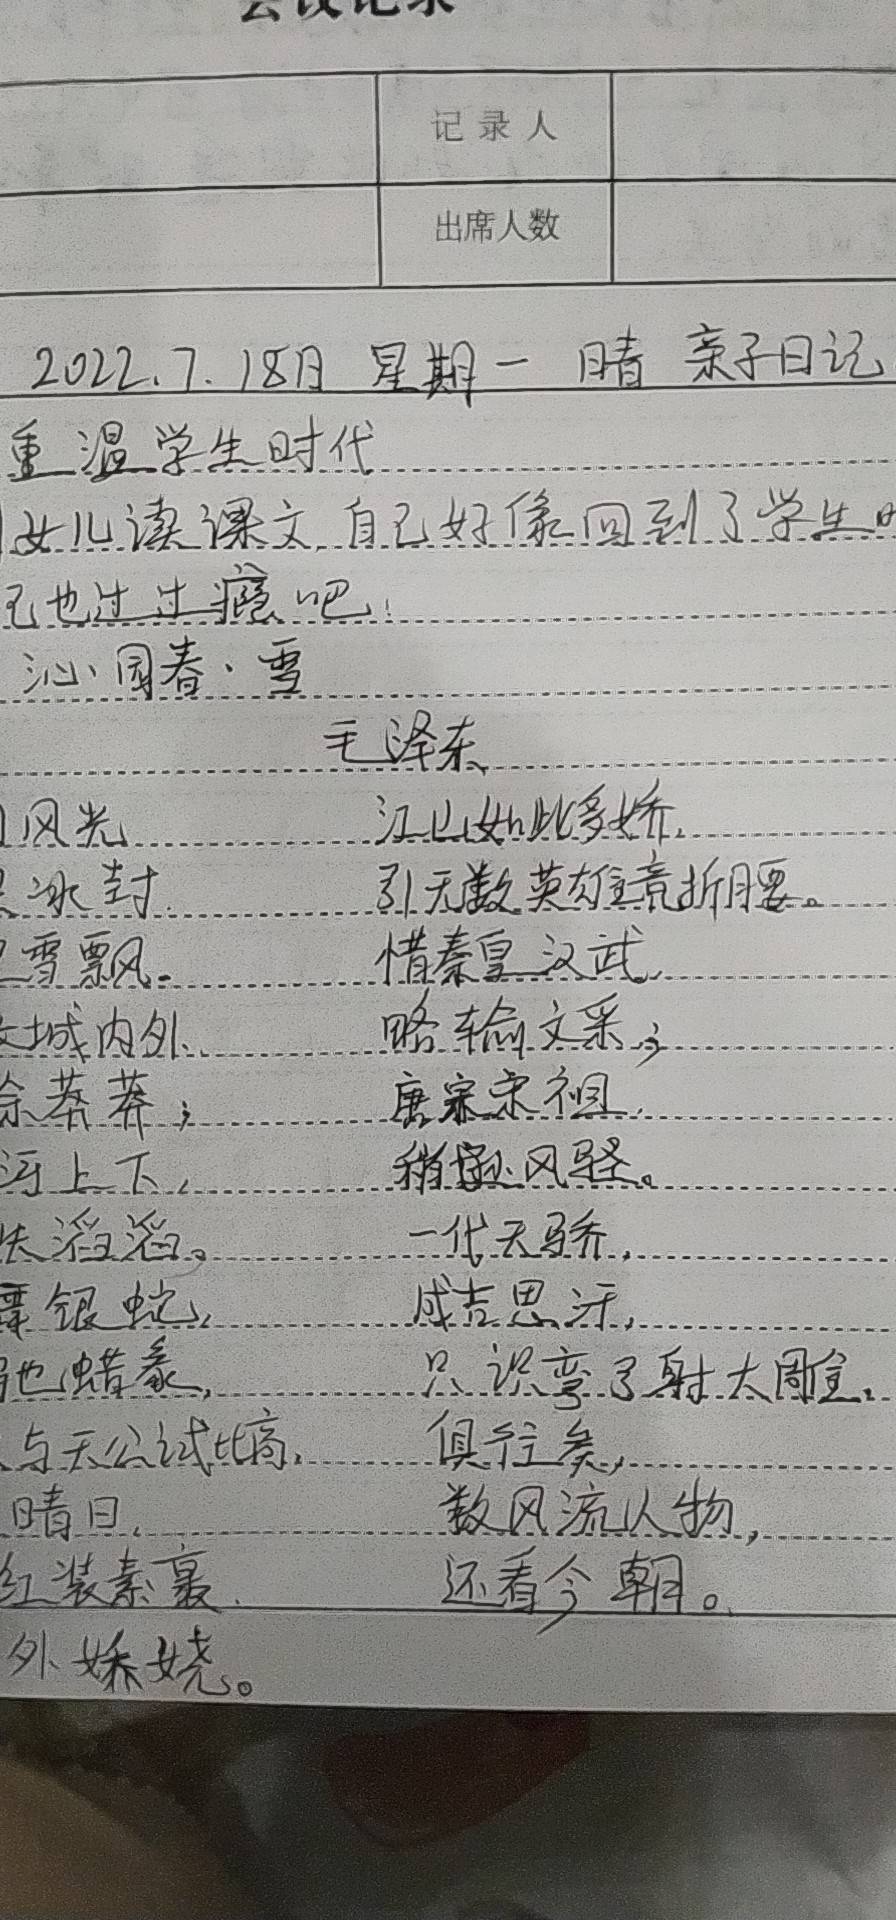 会议记录
记录人
出席人数
2022.7.18日 星期一 晴 亲子日记
重温学生时代
女儿读课文,自己好像回到了学生时
己也过过瘾吧!
沁园春·雪
毛泽东
风光
冰封
雪飘。
城内外
馀莽莽;
河上下,
失滔滔。
舞银蛇,
驰蜡象,
与天公试比高.
晴日,
红装素裹
外娇娆。
江山如此多娇,
引无数英雄竞折腰。
惜秦皇汉武,
略输文采;
唐宗宋祖,
稍逊风骚。
一代天骄,
成吉思汗,
只识弯弓射大雕.
俱往矣,
数风流人物,
还看今朝。